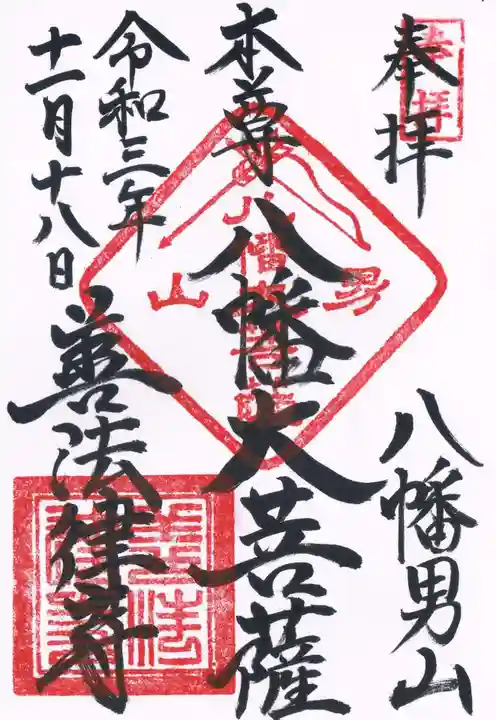 奉拝
八幡男山
本尊八幡大菩薩
令和三年
十一月十八日
善法律寺
奉拝
男
山
八幡